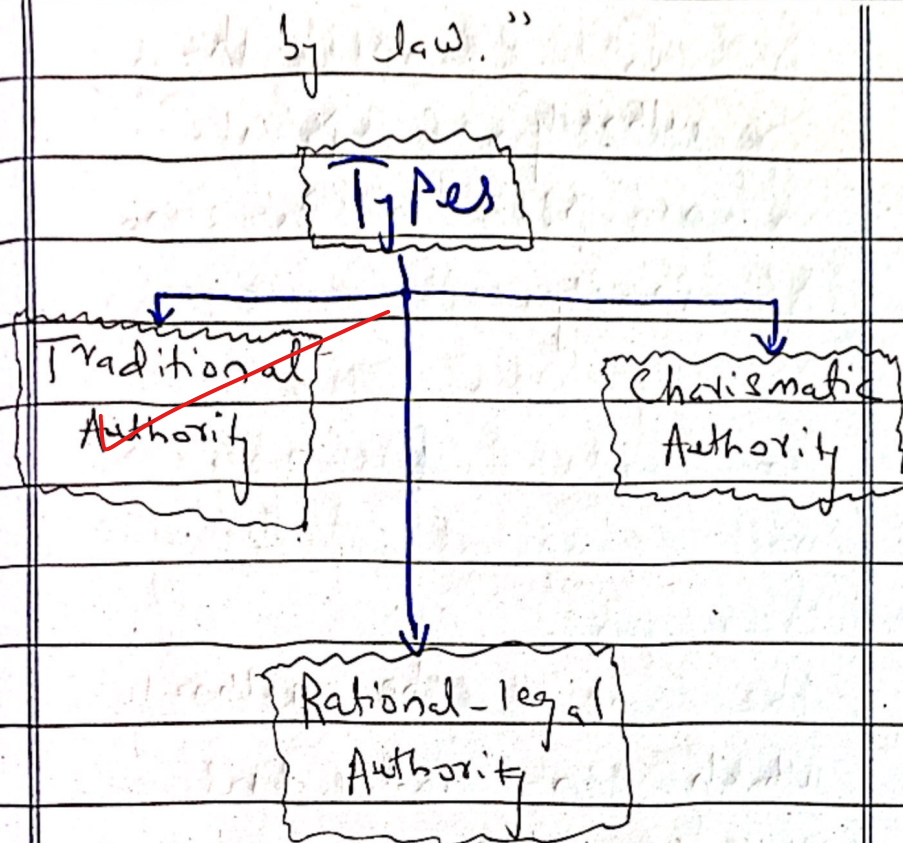 by law."
Types
Traditional
Authority
Charismatic
Authority
Rational-legal
Authority